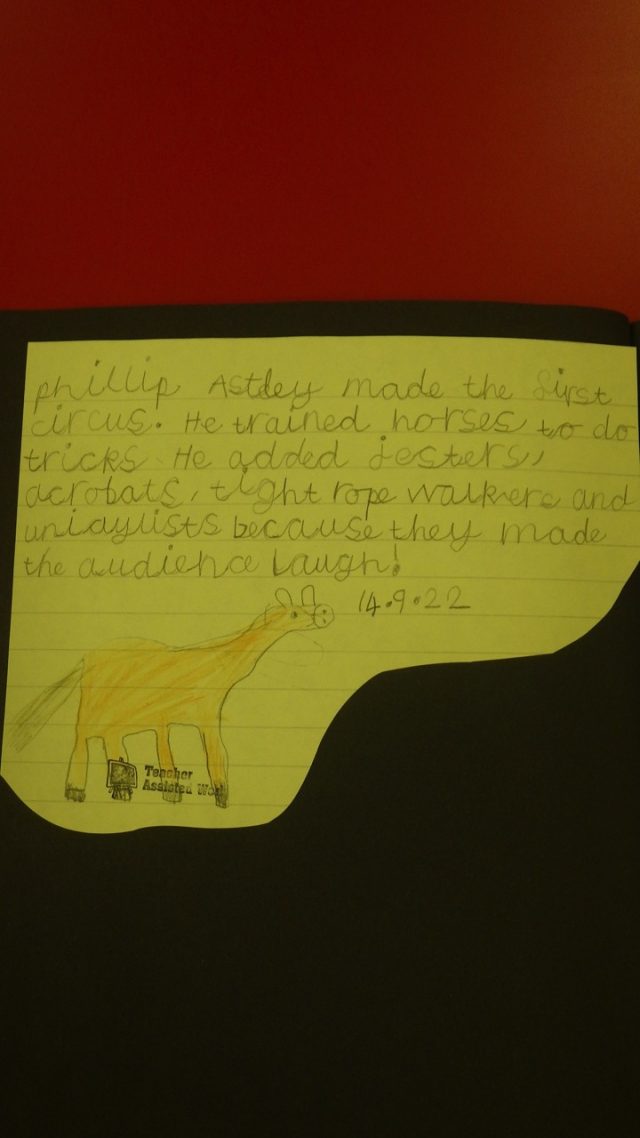 phillip Astley made the first
circus. He trained horses to do
tricks. He added jesters,
acrobats, tight rope walkers and
uniaylists because they made
the audience laugh!
14.9.22
Teacher
Assisted Wo